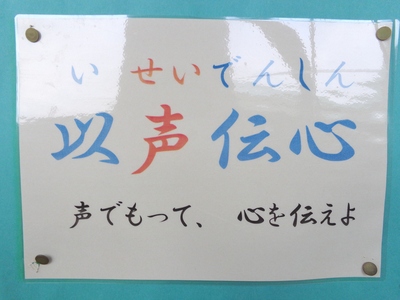 いせいでんしん
以声伝心
声でもって、心を伝えよ